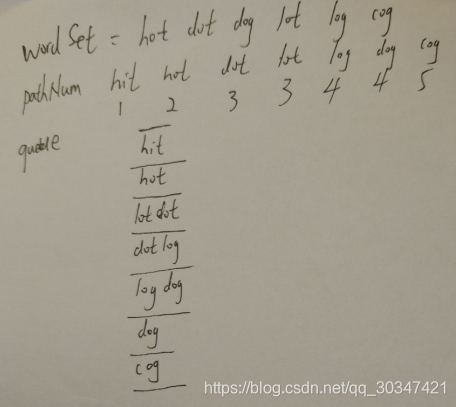 word Set = hot dot dog lot log cog
pathNum hit hot dot lot log dog cog
1 2 3 3 4 4 5
hit
hot
lot dot
dot log
log dog
dog
cog
https://blog.csdn.net/qq_30347421